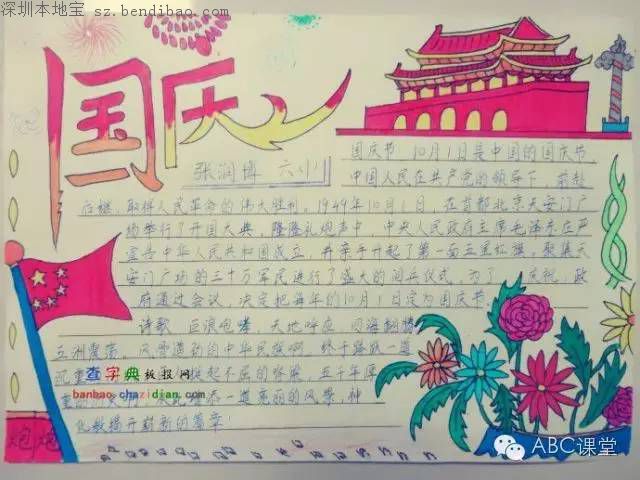 深圳本地宝 sz.bendibao.com
国庆
张润博 六小
国庆节 10月1日是中国的国庆节
中国人民在共产党的领导下,前赴
后继,取得人民革命的伟大胜利。1949年10月1日,在首都北京天安门广
场举行了开国大典,隆隆礼炮声中,中央人民政府主席毛泽东庄严
宣告中华人民共和国成立,并亲手升起了第一面五星红旗。聚集天
安门广场的三十万军民进行了盛大的阅兵仪式,为了 庆祝,政
府通过会议,决定把每年的10月1日定为国庆节。
诗歌 巨浪咆哮,天地呼应,四海翻腾
五洲震荡。
挺起不屈的脊梁,五千年
一道亮丽的风景,神
新的篇章!
查字典 板报网
banbao.chazidian.com
ABC课堂